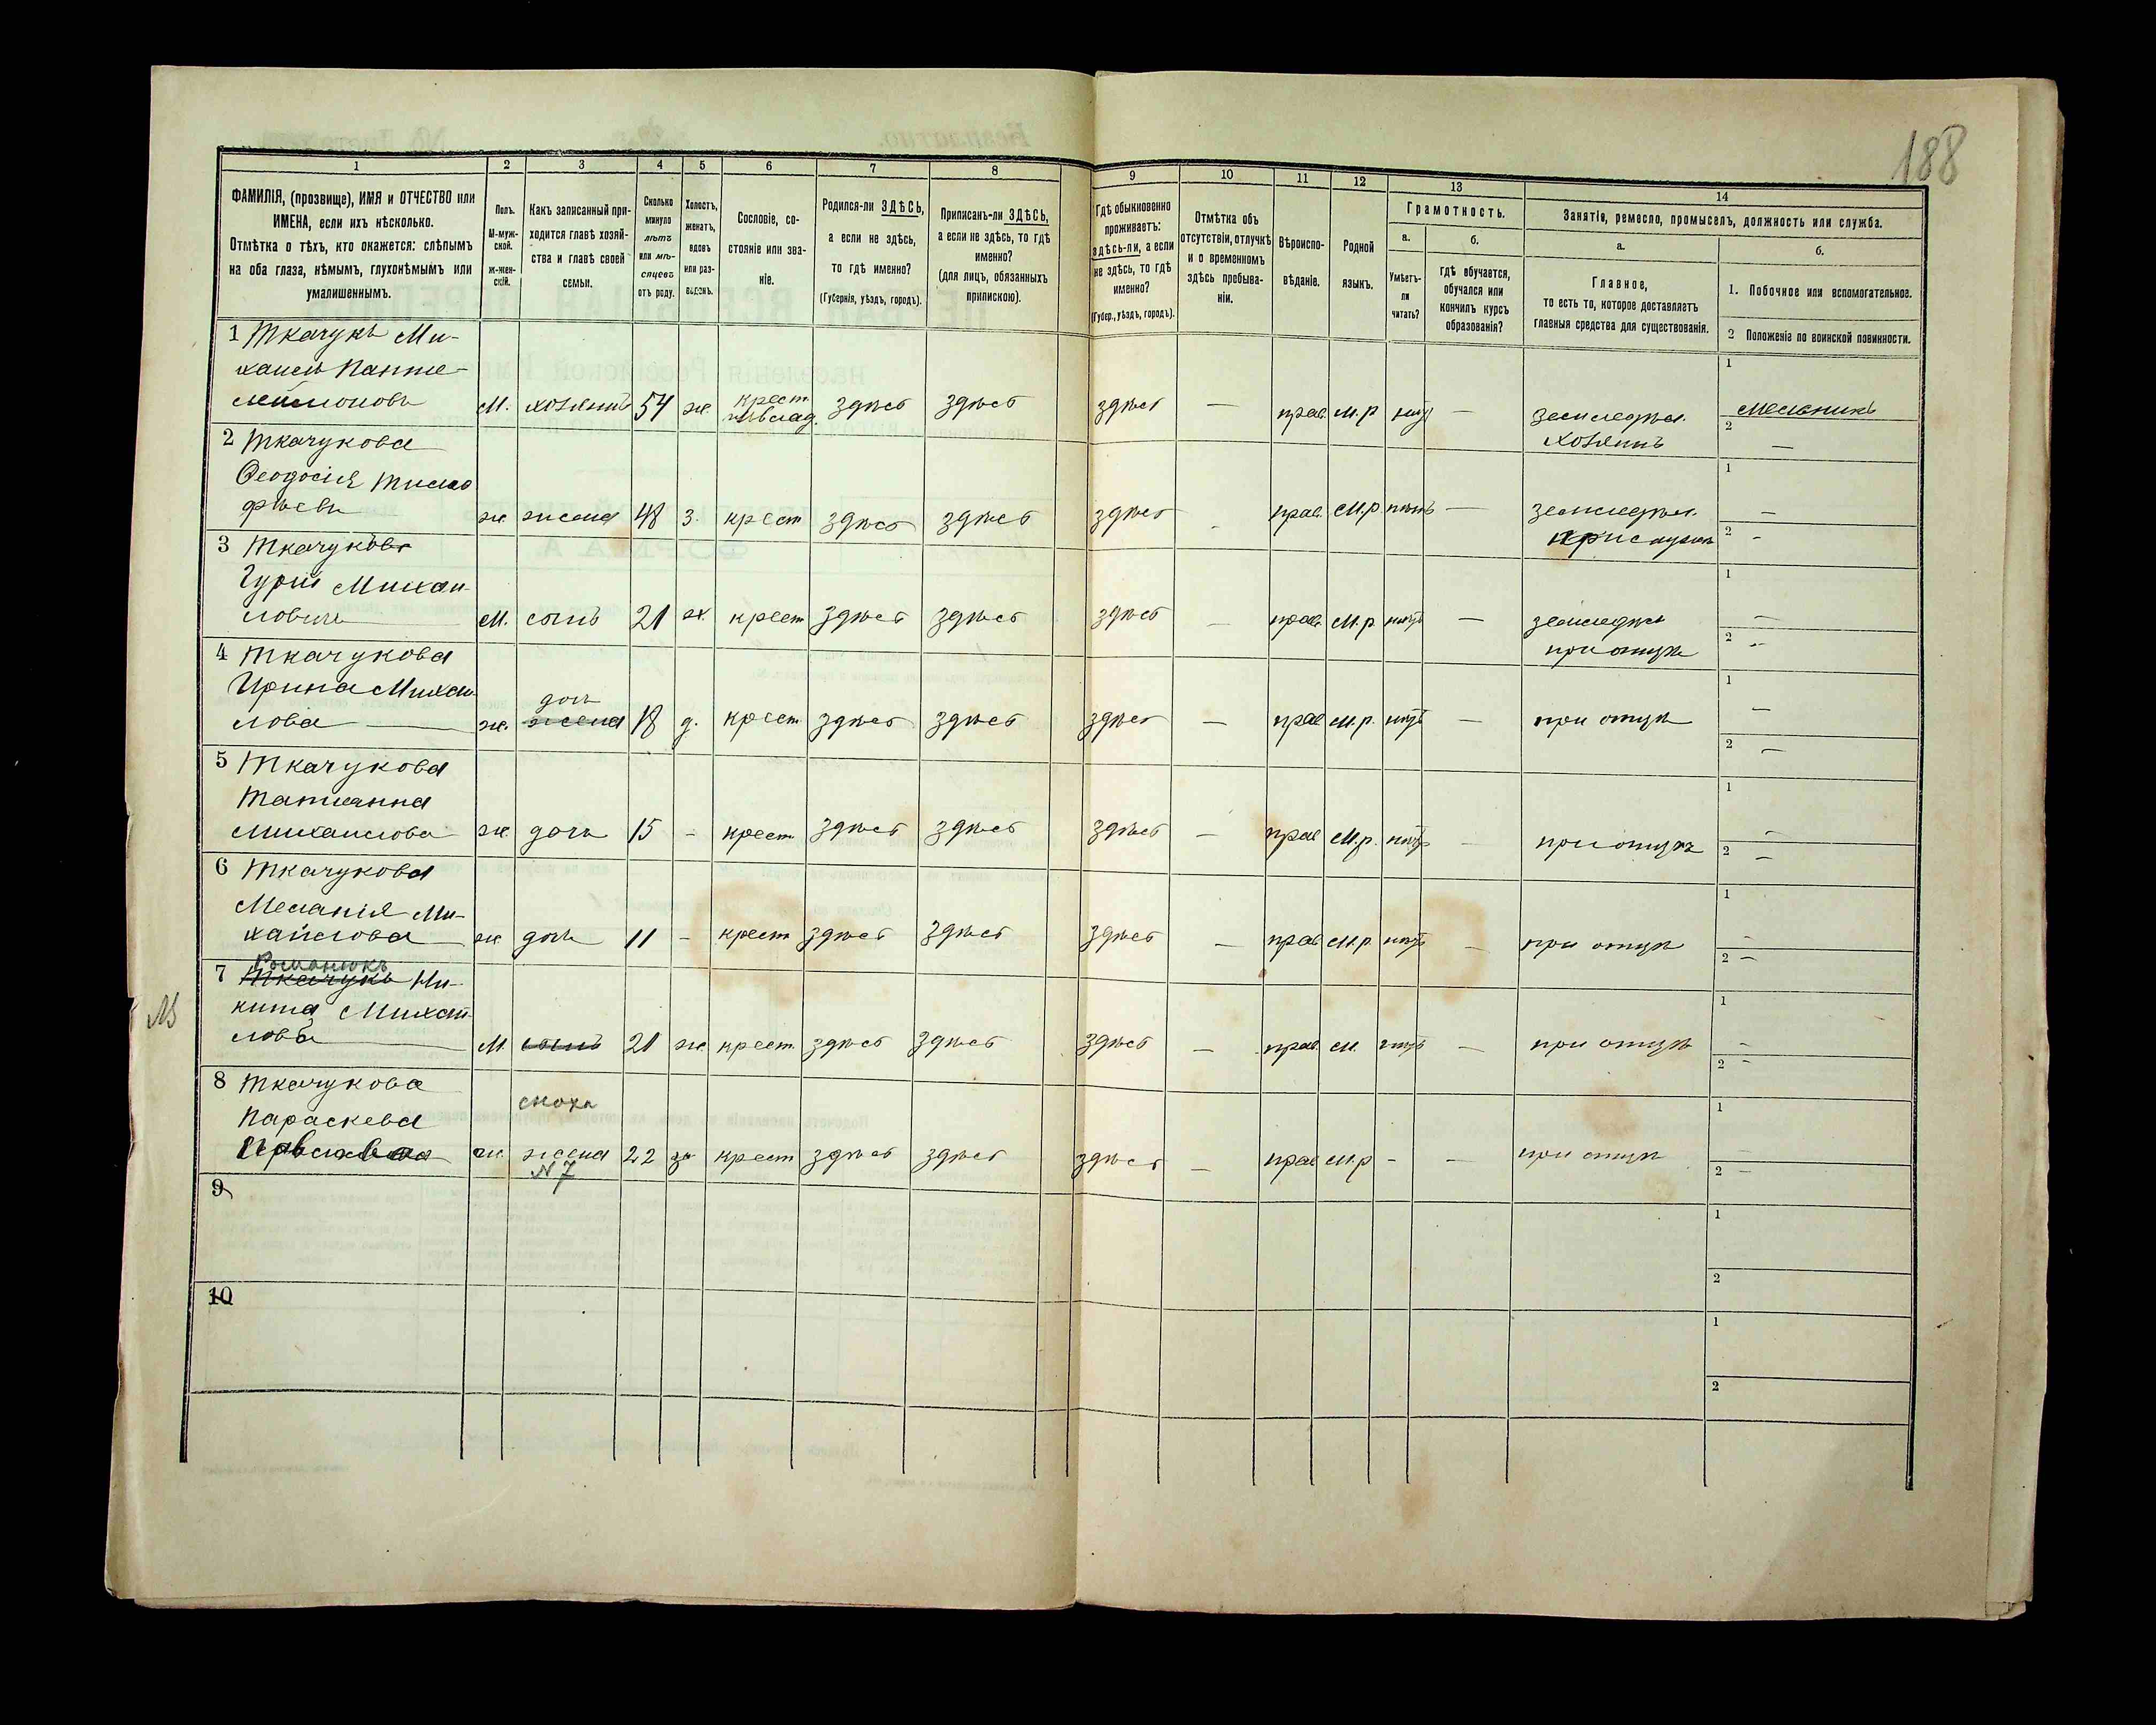 188
1
2
3
4
5
6
7
8
9
10
11
12
13
14
ФАМИЛІЯ, (прозвище), ИМЯ и ОТЧЕСТВО или
ИМЕНА, если ихъ нѣсколько.
Отмѣтка о тѣхъ, кто окажется: слѣпымъ
на оба глаза, нѣмымъ, глухонѣмымъ или
умалишеннымъ.
Полъ.
М-муж-
ской.
ж-жен-
скій.
Какъ записанный при-
ходится главѣ хозяй-
ства и главѣ своей
семьи.
Сколько
минуло
лѣтъ
или мѣ-
сяцевъ
отъ роду.
Холостъ,
женатъ,
вдовъ
или раз-
веденъ.
Сословіе, со-
стояніе или зва-
ніе.
Родился-ли ЗДѢСЬ,
а если не здѣсь,
то гдѣ именно?
(Губернія, уѣздъ, городъ).
Приписанъ-ли ЗДѢСЬ,
а если не здѣсь, то гдѣ
именно?
(для лицъ, обязанныхъ
припискою).
Гдѣ обыкновенно
проживаетъ:
здѣсь-ли, а если
не здѣсь, то гдѣ
именно?
(Губер., уѣздъ, городъ).
Отмѣтка объ
отсутствіи, отлучкѣ
и о временномъ
здѣсь пребыва-
ніи.
Вѣроиспо-
вѣданіе.
Родной
языкъ.
Грамотность.
а.
Умѣетъ-
ли
читать?
б.
гдѣ обучается,
обучался или
кончилъ курсъ
образованія?
Занятіе, ремесло, промыселъ, должность или служба.
а.
Главное,
то есть то, которое доставляетъ
главныя средства для существованія.
б.
1. Побочное или вспомогательное.
2 Положеніе по воинской повинности.
1 Ткачукъ Ми-
хаилъ Панте-
леймоновъ М. хозяинъ 54 ж. крест. здѣсь здѣсь здѣсь — прав. м.р нѣтъ — земледѣл. хозяинъ
1 мельникъ
2 —
2 Ткачукова
Феодосія Тимо
фѣева ж жена 48 з. крест здѣсь здѣсь здѣсь прав. м.р нѣтъ — земледѣл.
1 —
2 -
3 Ткачуковъ
Гурій Михаи-
ловичъ М. сынъ 21 ж. крест здѣсь здѣсь здѣсь — прав. м.р нѣтъ — земледѣл при отцѣ
1 —
2 —
4 Ткачукова
Ирина Михаи
лова ж. дочь жена 18 д. крест здѣсь здѣсь здѣсь — прав м.р. нѣтъ — при отцѣ
1 —
2 —
5 Ткачукова
Татианна
Михаилова ж. дочь 15 - крест здѣсь здѣсь здѣсь — прав м.р. нѣтъ при отцѣ
1 —
2 —
6 Ткачукова
Меланія Ми-
хайлова ж дочь 11 - крест здѣсь здѣсь здѣсь — прав м.р нѣтъ — при отцѣ
1 —
2 —
Романюкъ
7 Ткачукъ Ни-
кита Михаи
ловъ М. сынъ 21 ж. крест. здѣсь здѣсь здѣсь — прав. м. нѣтъ — при отцѣ
1 —
2 —
8 Ткачукова
Параскева
ж. сноха жена N 7 22 крест здѣсь здѣсь здѣсь — прав м.р - — при отцѣ
1
2 —
9
1
2
10
1
2